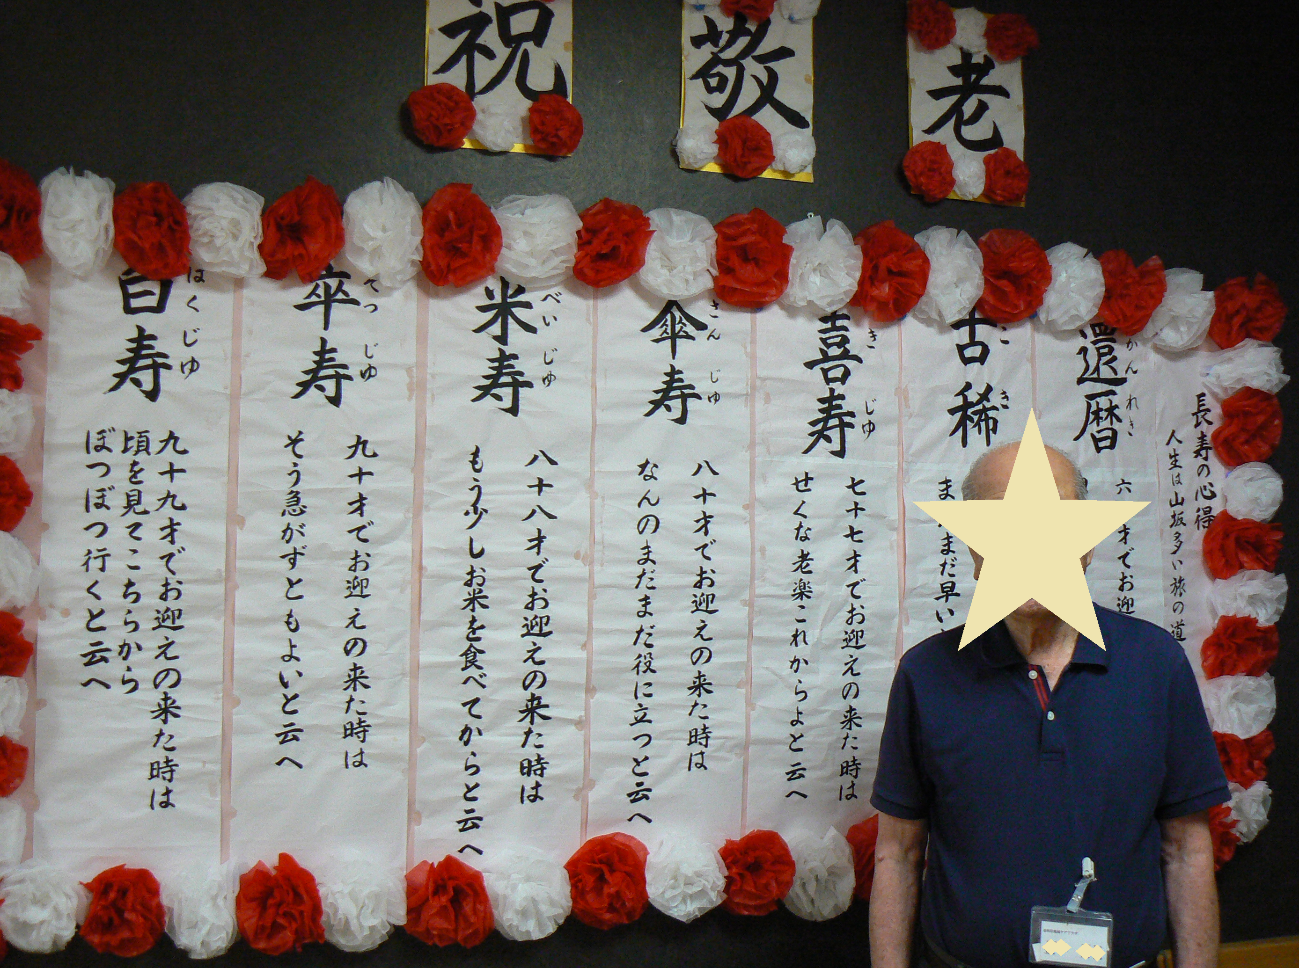 祝
敬
老
長寿の心得
人生は山坂多い旅の道
還暦
かんれき
六
才でお迎
古稀
こき
まだ早い
喜寿
きじゆ
七十七才でお迎えの来た時は
せくな老楽これからよと云へ
傘寿
さんじゆ
八十才でお迎えの来た時は
なんのまだまだ役に立つと云へ
米寿
べいじゆ
八十八才でお迎えの来た時は
もう少しお米を食べてからと云へ
卒寿
そつじゆ
九十才でお迎えの来た時は
そう急がずともよいと云へ
白寿
はくじゆ
九十九才でお迎えの来た時は
頃を見てこちらから
ぼつぼつ行くと云へ